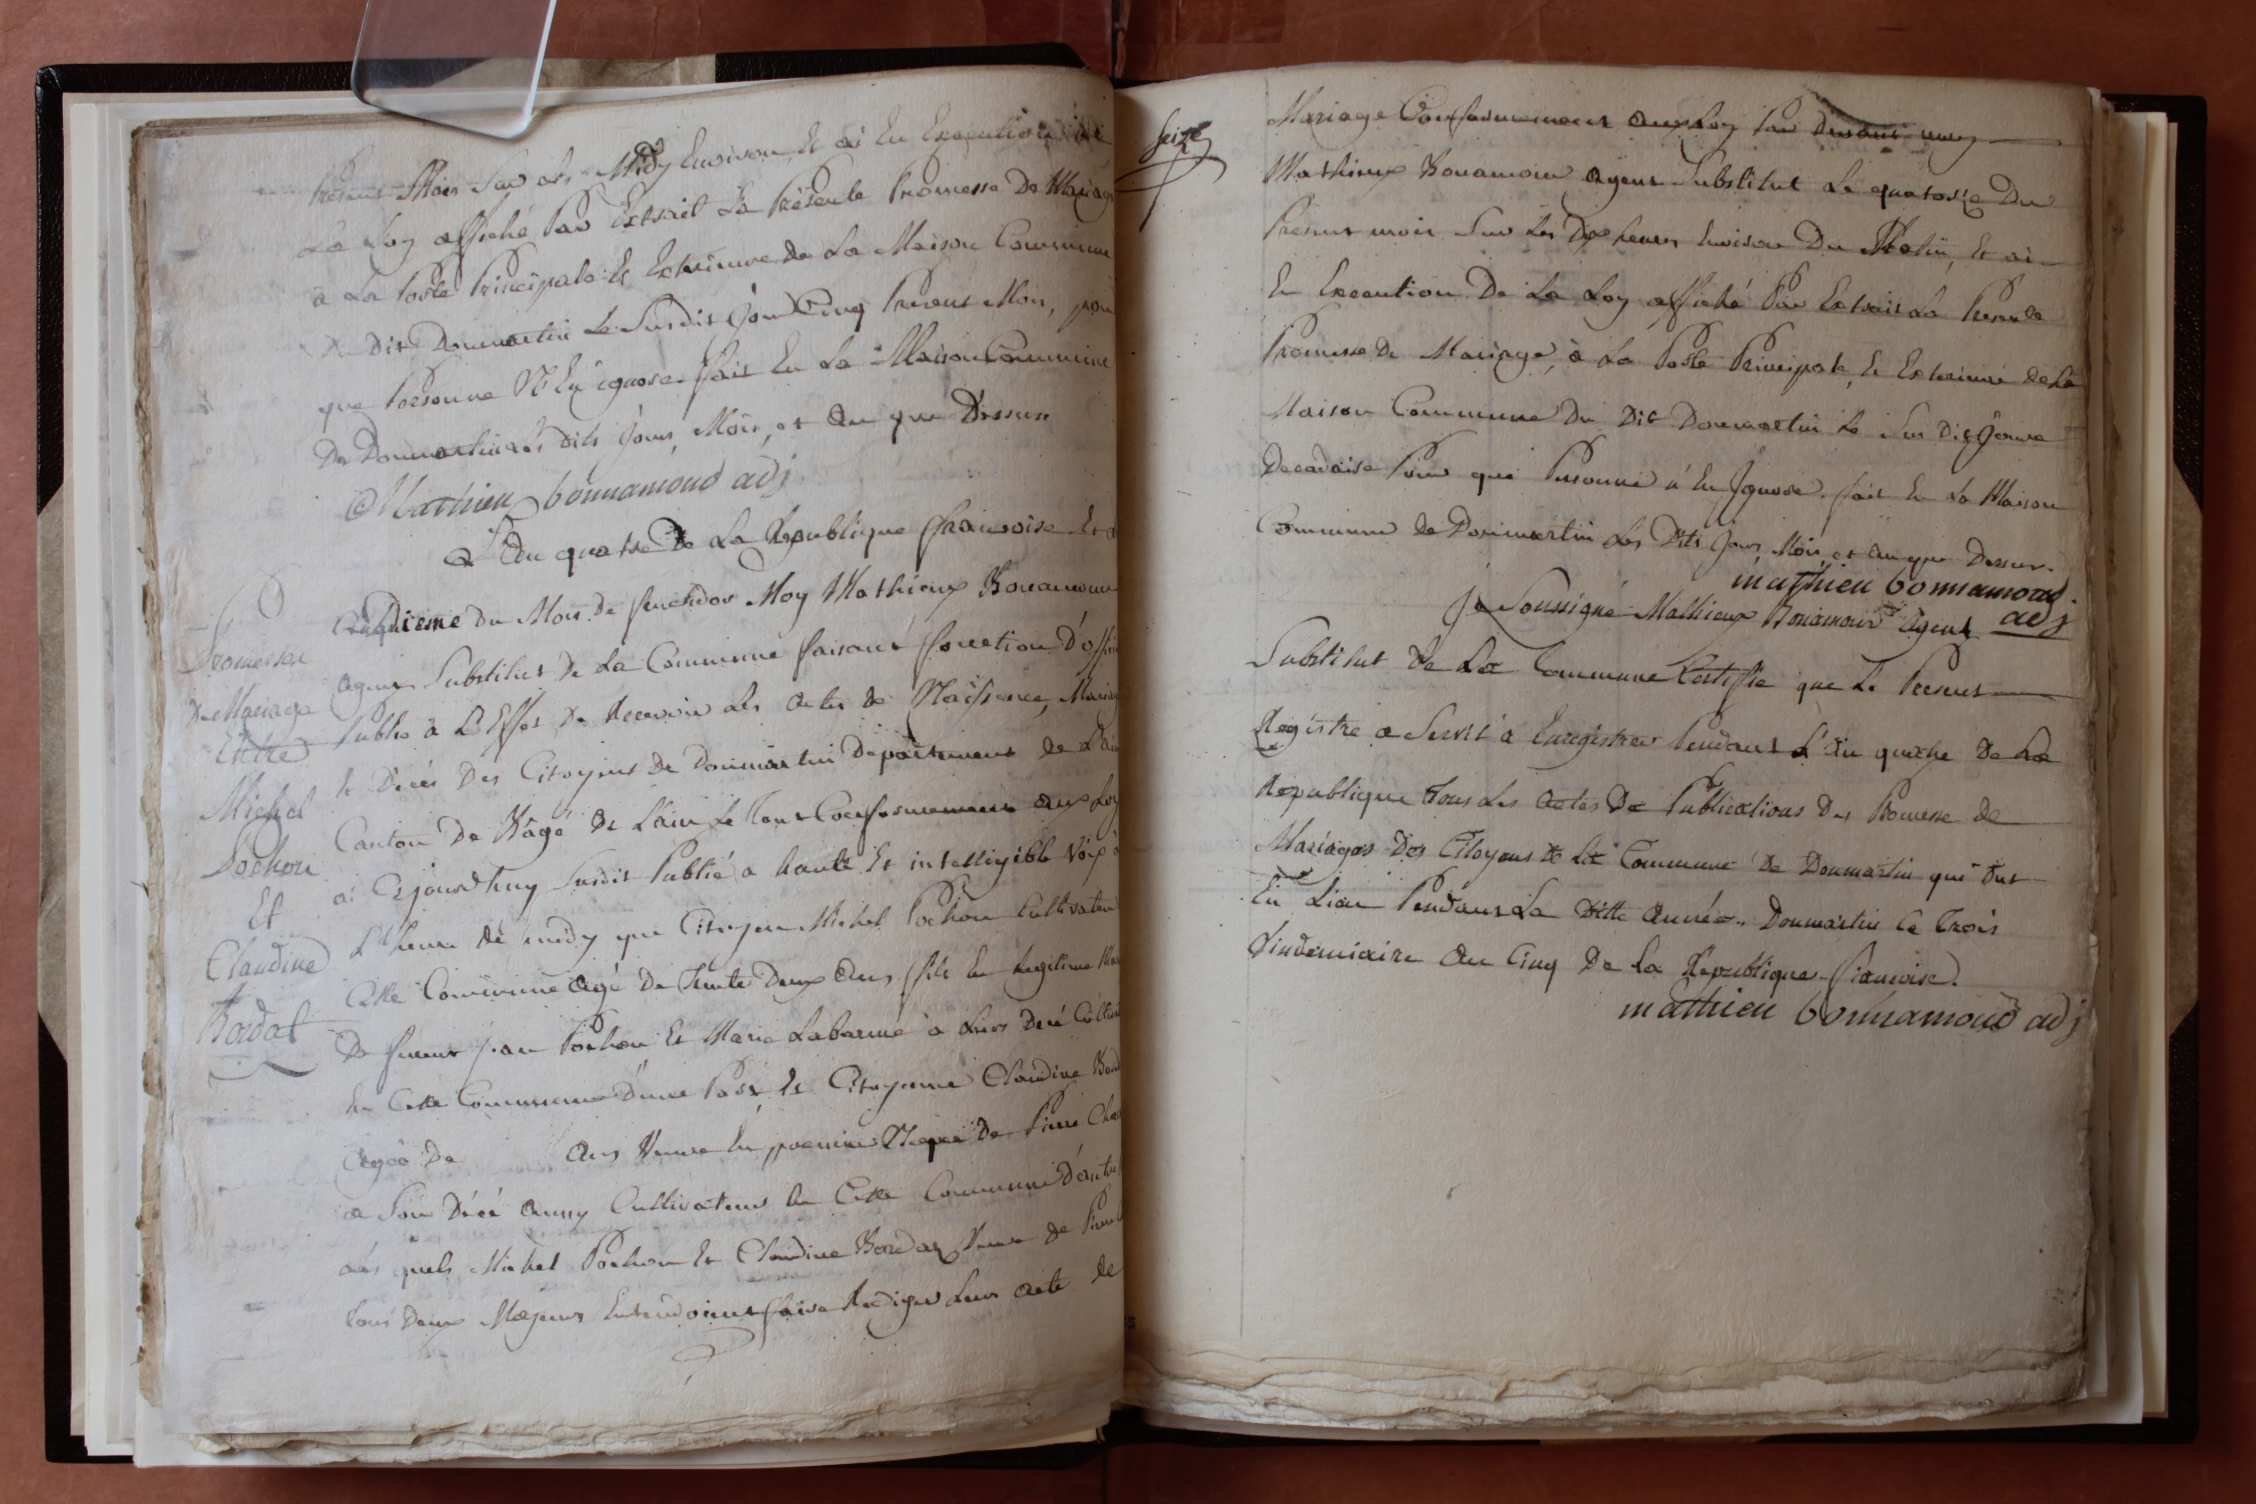 présent Mois sur les Midy Environ, Et ai En Execution de
La Loy affiché Par Extrait La Présente Promesse De Mariage
à La Porte Principale Et Exterieure de La Maison Commune
Du Dit Dommartin Le Susdit Jour Cinq Present Mois, pour
que Personne N'En ignore fait En La Maison Commune
De Dommartin Les dits Jours, Mois, et An que Dessus
Mathieu bonnamour adj
L'An quatre De La Republique francoise Et
Cinquieme du Mois de fructidor Moy Mathieux Bonamour
agent Substitut de La Commune faisant fonction D'offi
Public à L'Effet De Recevoir Les Actes de Naissence, Mariag
Et Décés Des Citoyens De Dommartin Departement de L'ain
Canton De Bâgé De L'ain Le Tout Conformement aux Loy
ai Cejourdhuy Susdit Publié a haute Et intelligible Voix à
L'heure de midy que Citoyen Michel Pochon Cultivateur
Cette Commune Agé De Trente Deux Ans fils En Legitime Ma
De feu Jean Pochon Et Marie Labarme à Leurs Décé Cultiva
En Cette Commune D'une Part, Et Citoyenne Claudine Bord
Agée De Ans Veuve En premiere De Pierre
a Son Décé Aussy Cultivateur En Cette Commune D'autre
Les quels Michel Pochon Et Claudine Bordat Veuve de Pierre
Tous Deux Majeurs Entendoient faire Rediger Leur Acte de
Promesse
De Mariage
Entre
Michel
Pochon
Et
Claudine
Bordat
Seize
Mariage Conformement aux Loy Par Devant moy
Mathieux Bonamour Agent Substitut Le quatorze Du
Present mois Sur Les Dix heures Environ Du Matin, Et ai
En Execution De La Loy affiché Par Extrait La Presente
Promesse De Mariage, à La Porte Principale Et Exterieure de La
Maison Commune Du Dit Dommartin Le Sus Dit Jour
Decadaire Pour que Personne n'En Ignore fait En La Maison
Commune de Dommartin Les Dits Jours, Mois, et An que Dessus.
mathieu bonnamour
adj
Je Soussigné Mathieux Bonamour Agent
Substitut De La Commune Certiffie que Le Present
Registre a Servit à Enregistrer Pendant L'An quatre De La
Republique Tous Les Actes De Publications Des Promesse De
Mariages Des Citoyens De La Commune De Dommartin qui Ont
Eu Lieu Pendant La Ditte Année. Dommartin Ce Trois
Vindemiaire An Cinq De la Republique francoise.
mathieu bonnamour adj